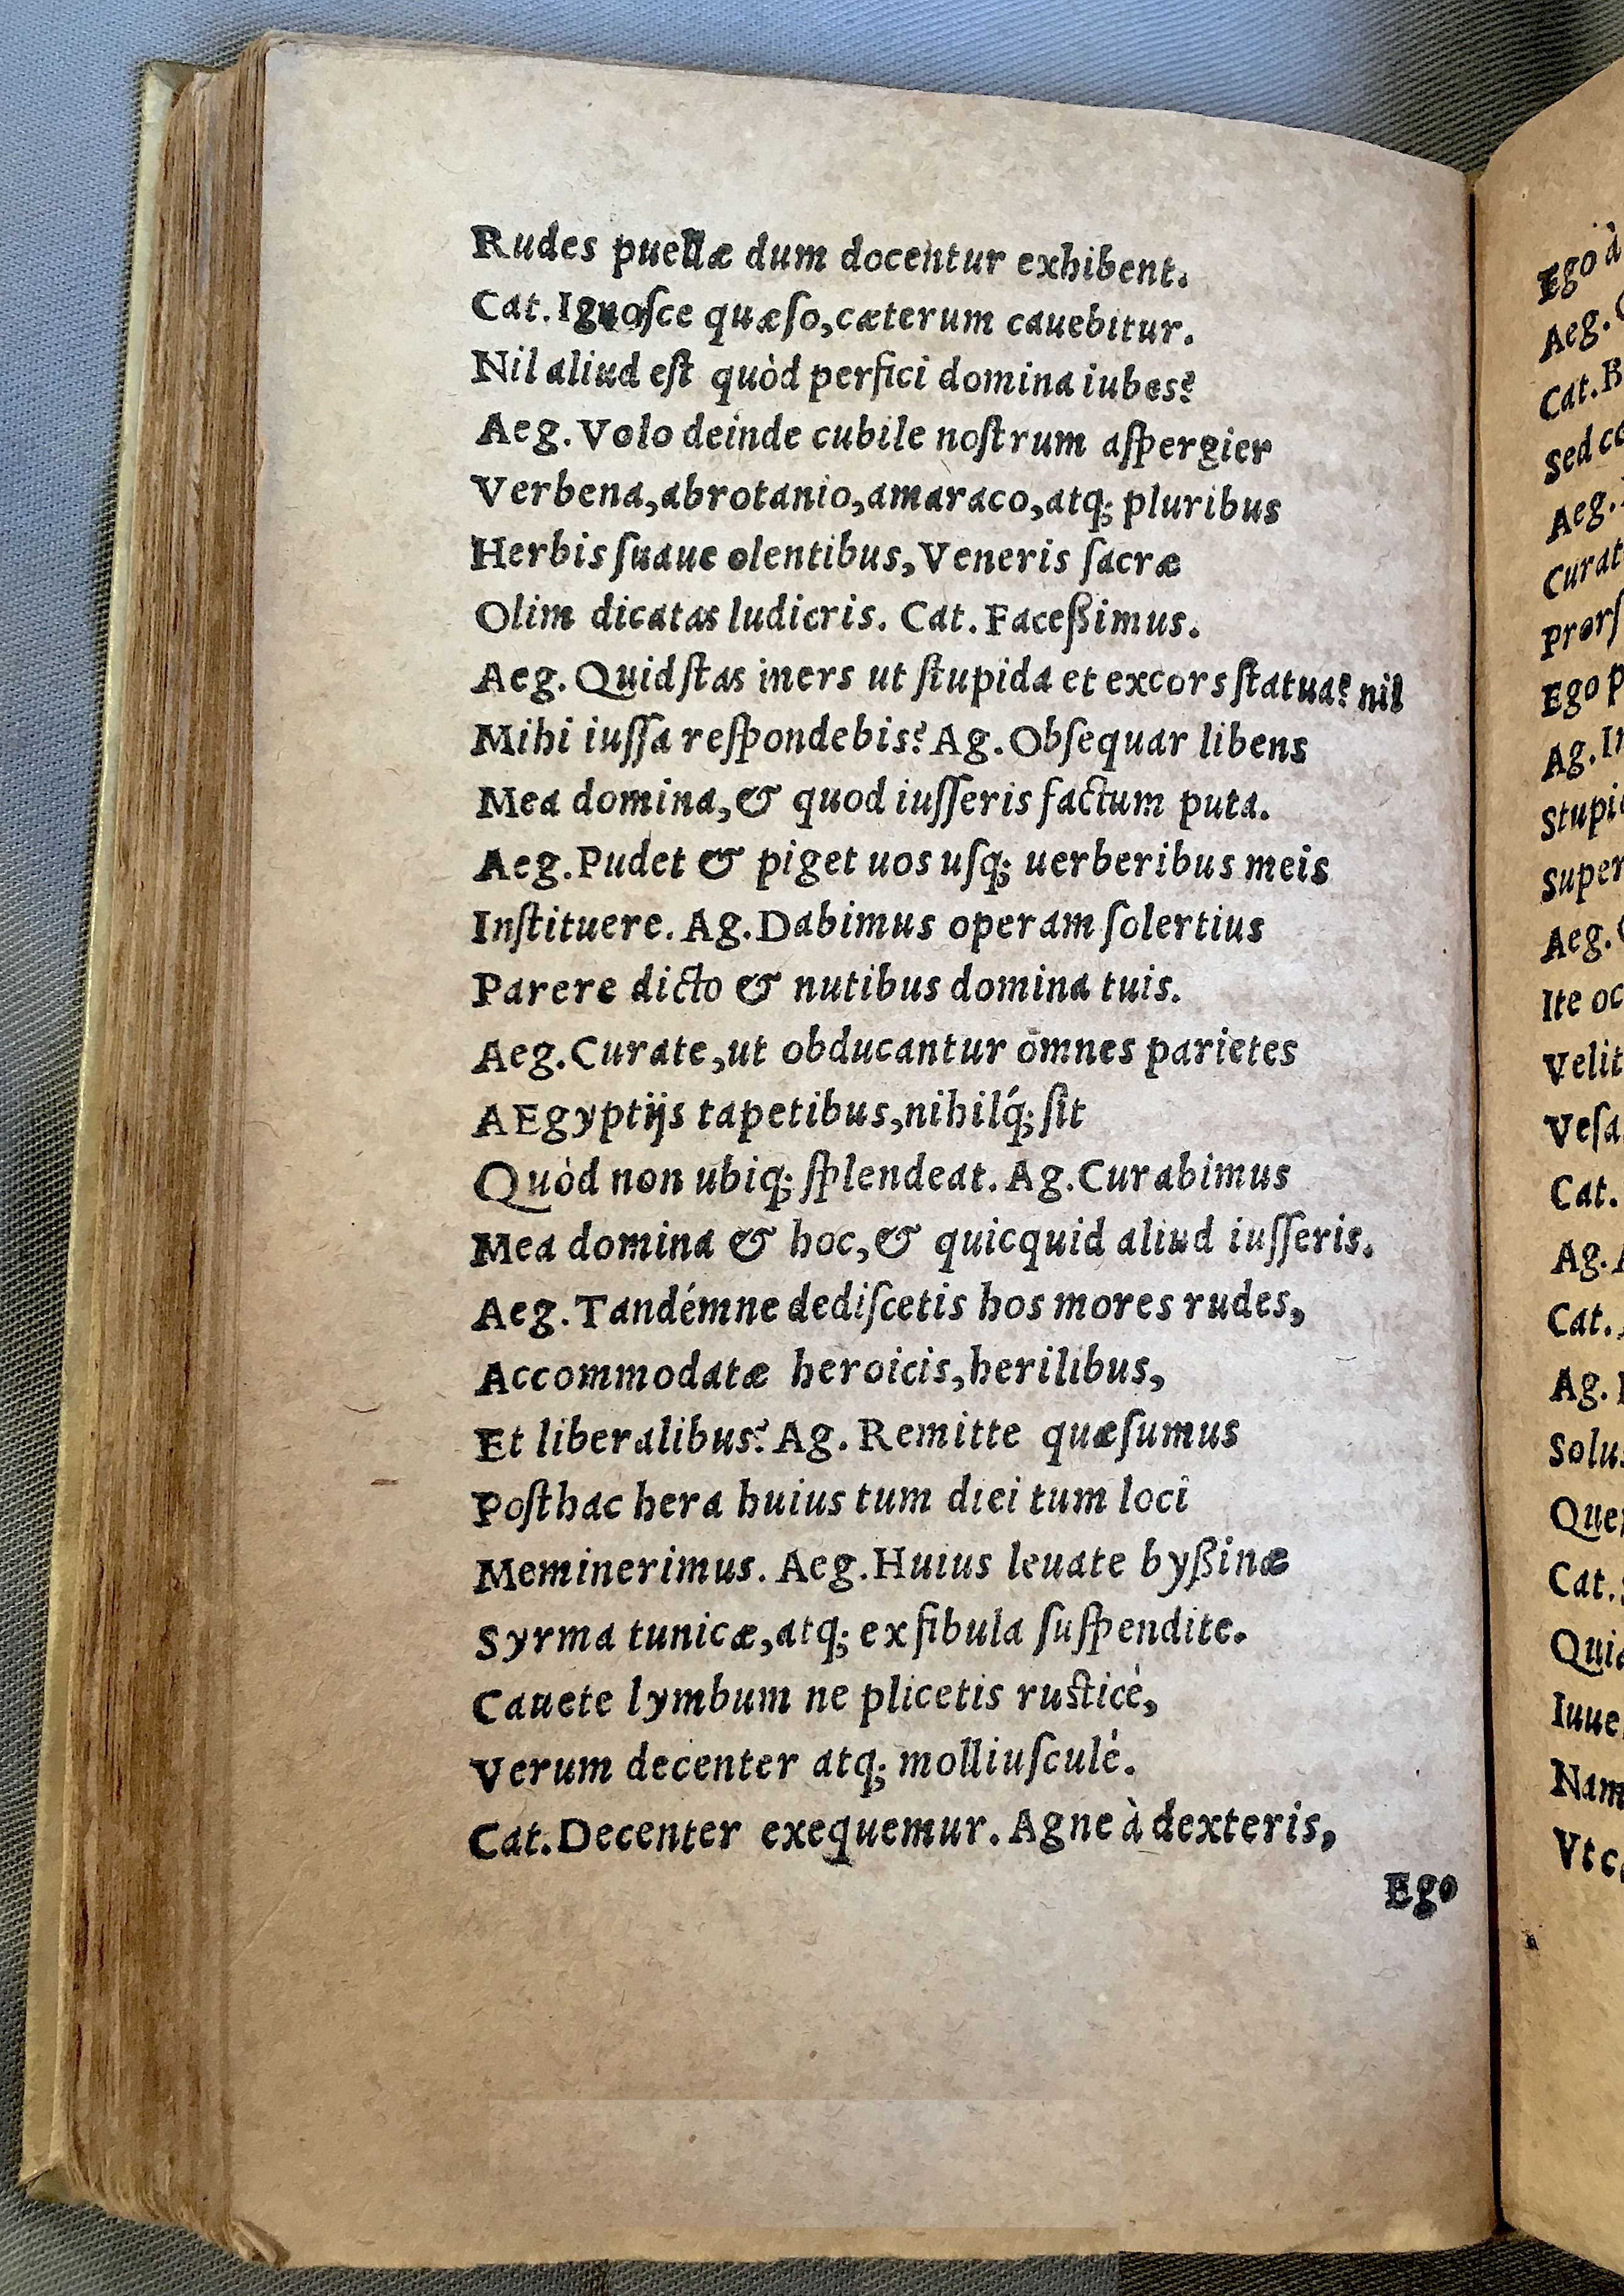 Rudes puellæ dum docentur exhibent.
Cat. Ignoſce quæſo, cæterum cauebitur.
Nil aliud eſt quòd perfici domina iubes?
Aeg. Volo deinde cubile noſtrum aſpergier
Verbena, abrotanio, amaraco, atq; pluribus
Herbis ſuaue olentibus, Veneris ſacræ
Olim dicatas ludicris. Cat. Faceßimus.
Aeg. Quid ſtas iners ut ſtupida et excors ſtatua? nil
Mihi iuſſa reſpondebis? Ag. Obſequar libens
Mea domina, & quod iuſſeris factum puta.
Aeg. Pudet & piget uos uſq; uerberibus meis
Inſtituere. Ag. Dabimus operam ſolertius
Parere dicto & nutibus domina tuis.
Aeg. Curate, ut obducantur omnes parietes
AEgyptijs tapetibus, nihilq́; ſit
Quòd non ubiq; ſplendeat. Ag. Curabimus
Mea domina & hoc, & quicquid aliud iuſſeris.
Aeg. Tandémne dediſcetis hos mores rudes,
Accommodatæ heroicis, herilibus,
Et liberalibus? Ag. Remitte quæſumus
Poſthac hera huius tum diei tum loci
Meminerimus. Aeg. Huius leuate byßinæ
Syrma tunicæ, atq; ex fibula ſuſpendite.
Cauete lymbum ne plicetis ruſticè,
Verum decenter atq; molliuſculè.
Cat. Decenter exequemur. Agne à dexteris,
Ego
Ego à
Aeg.
Cat.
Sed
Aeg.
Ego
Ag.
Aeg.
Ite
Velit
Cat.
Ag.
Cat.
Ag.
Cat.